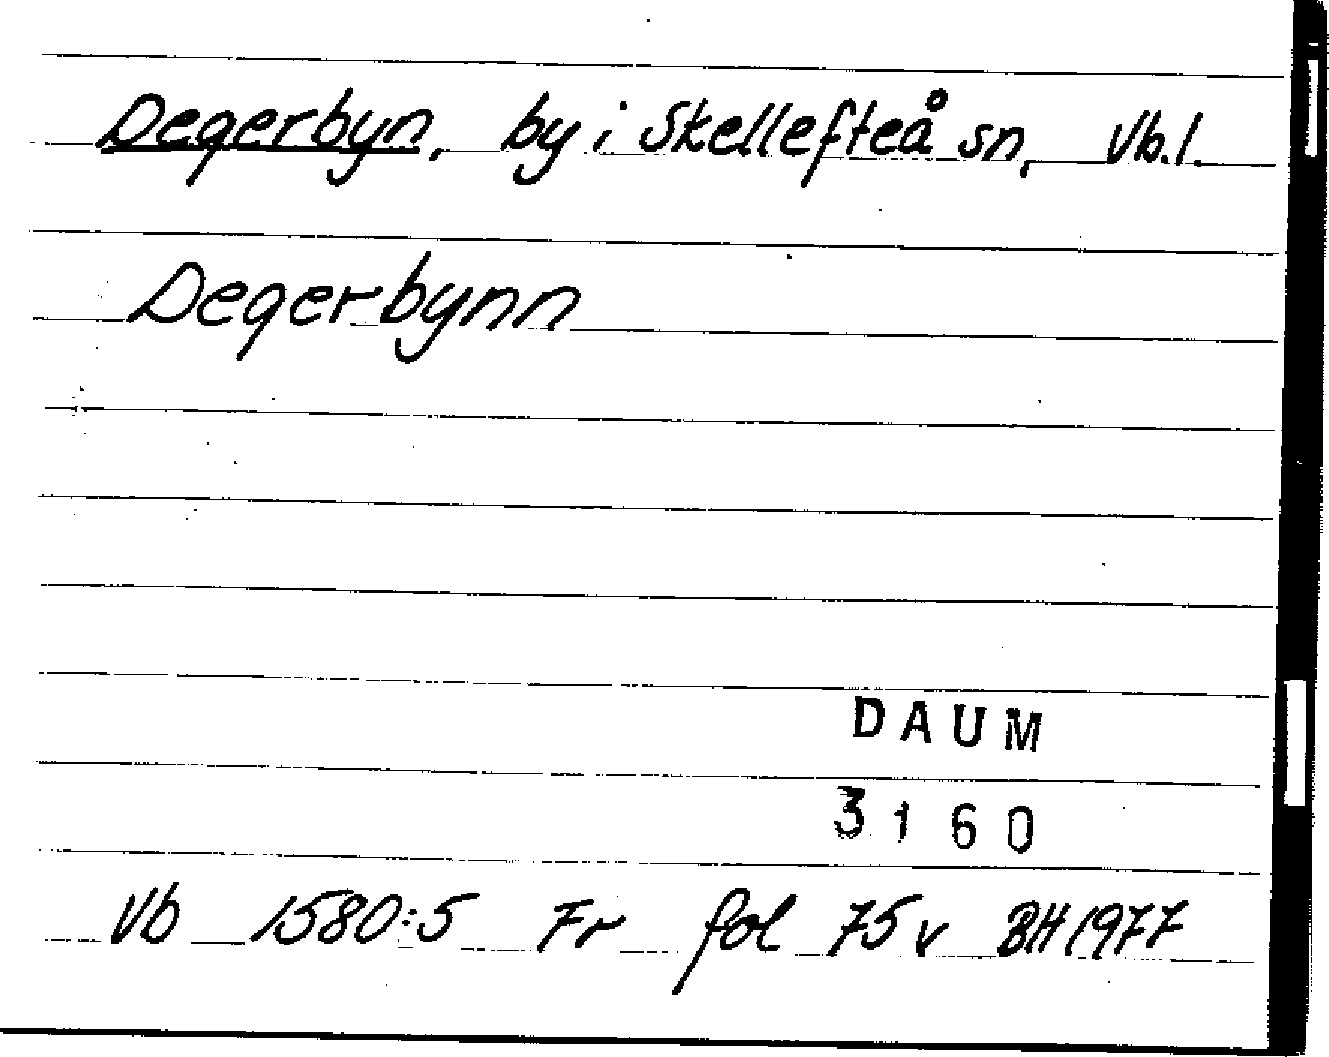 Degerbyn, by i Skellefteå sn, Vb.l.
Degerbynn
DAUM
3160
Vb 1580:5 Fr fol 75 v BH 1977